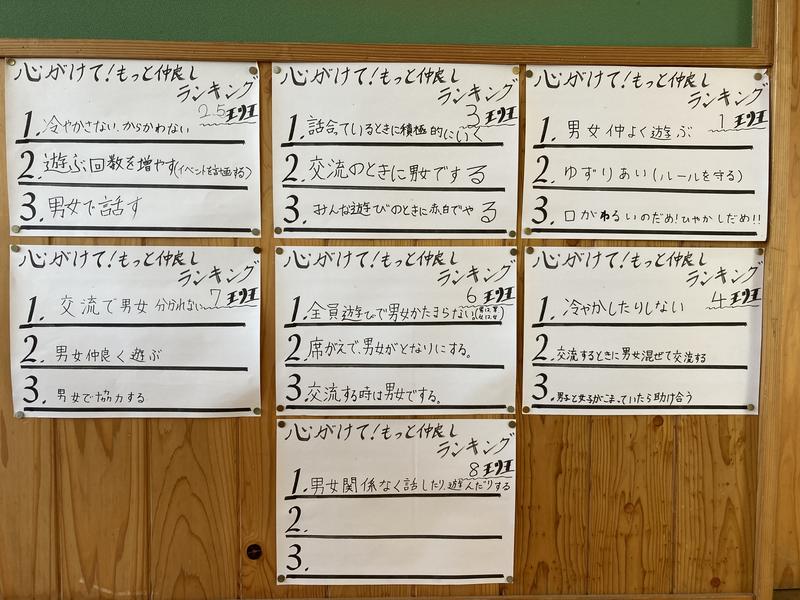 心がけて!もっと仲良し
ランキング
2.5班
1.冷やかさない、からかわない
2.遊ぶ回数を増やす(イベントを計画する)
3.男女で話す
心がけて!もっと仲良し
ランキング
3班
1.話合っているときに積極的にいく
2.交流のときに男女でする
3.みんな遊びのときに赤白でやる
心がけて!もっと仲良し
ランキング
1班
1.男女仲よく遊ぶ
2.ゆずりあい(ルールを守る)
3.口がわるいのだめ!ひやかしだめ!!
心がけて!もっと仲良し
ランキング
7班
1.交流で男女分かれない
2.男女仲良く遊ぶ
3.男女で協力する
心がけて!もっと仲良し
ランキング
6班
1.全員遊びで男女かたまらない
2.席がえで、男女がとなりにする。
3.交流する時は男女でする。
心がけて!もっと仲良し
ランキング
4班
1.冷やかしたりしない
2.交流するときに男女混ぜて交流する
3.男子と女子がこまっていたら助け合う
心がけて!もっと仲良し
ランキング
8班
1.男女関係なく話したり、遊んだりする
2.
3.